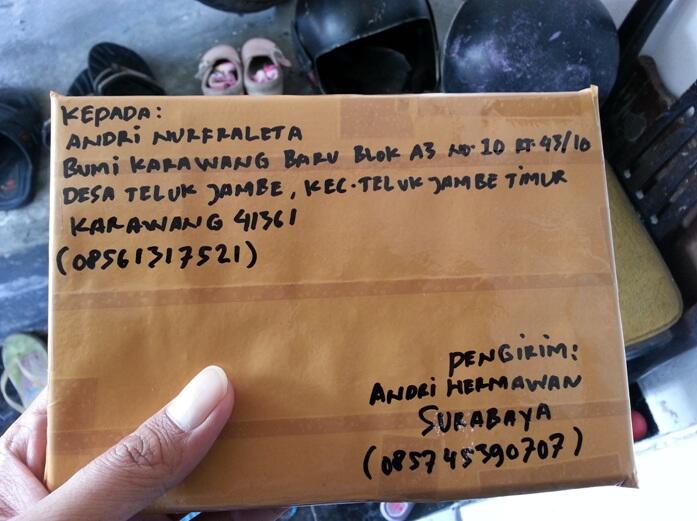 KEPADA:
ANDRI NURFRALETA
BUMI KARAWANG BARU BLOK A3 NO.10 RT.43/10
DESA TELUK JAMBE, KEC.TELUK JAMBE TIMUR
KARAWANG 41361
(08561317521)
PENGIRIM:
ANDRI HERMAWAN
SURABAYA
(085745390707)